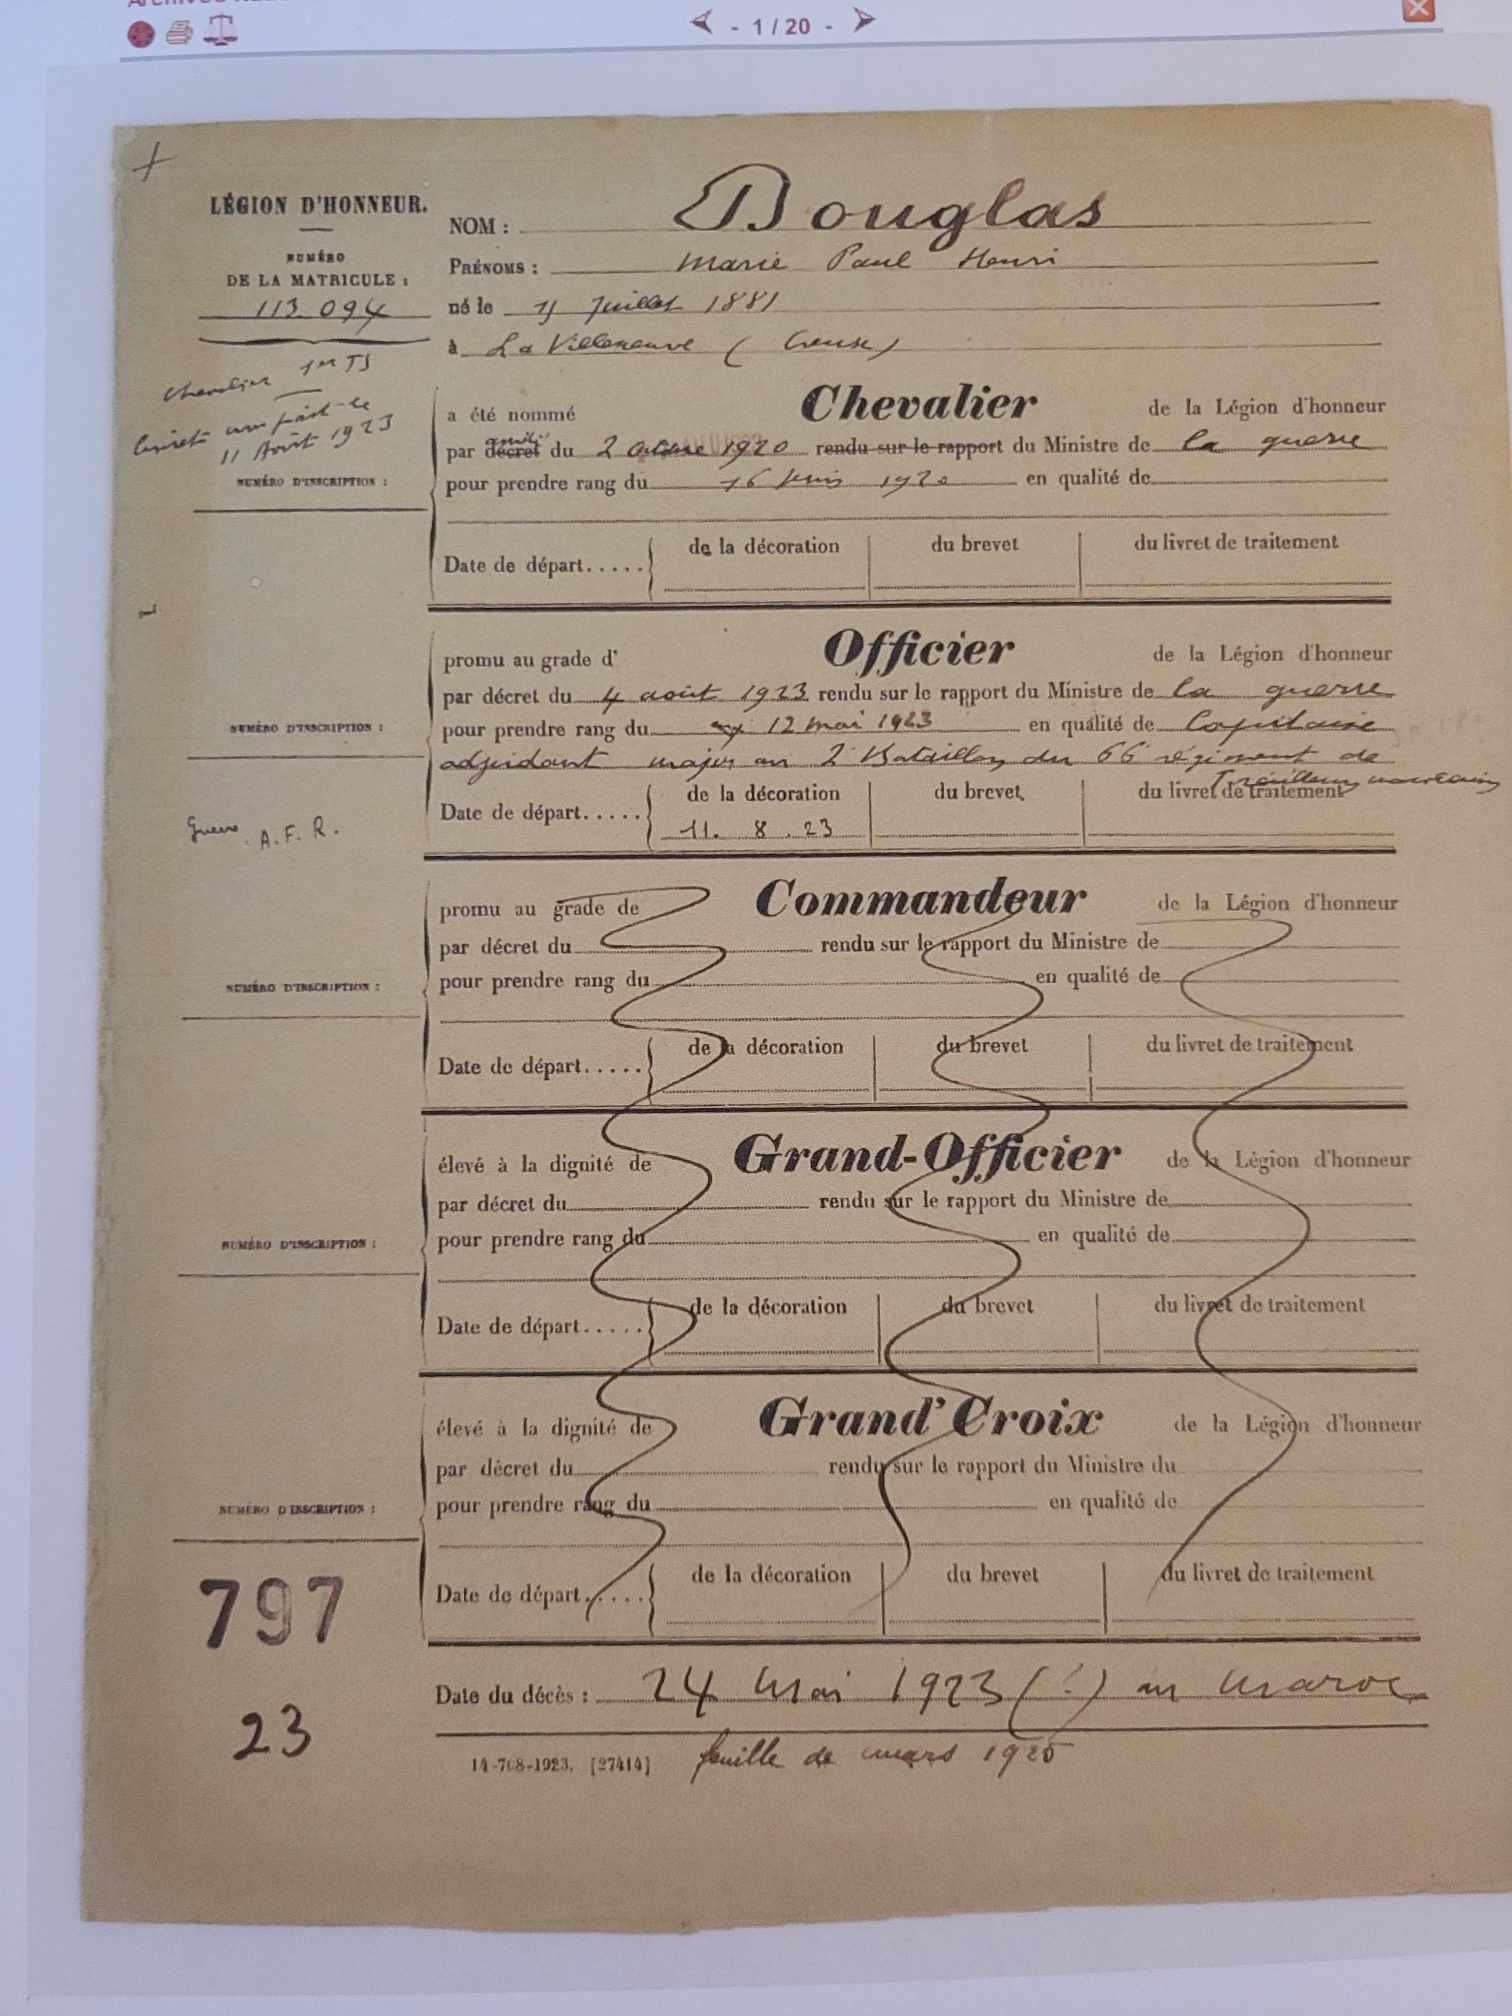 - 1 / 20 -
LÉGION D'HONNEUR.
NUMÉRO
DE LA MATRICULE :
113.094
NOM : Douglas
PRÉNOMS : Marie Paul Henri
né le Juillet 1881
à La Villeneuve (Creuse)
Chevalier
11 Août 1923
NUMÉRO D'INSCRIPTION :
a été nommé Chevalier de la Légion d'honneur
par décret du 2 octobre 1920 rendu sur le rapport du Ministre de la guerre
pour prendre rang du 16 juin 1920 en qualité de
Date de départ..... de la décoration du brevet du livret de traitement
promu au grade d' Officier de la Légion d'honneur
par décret du 4 août 1923 rendu sur le rapport du Ministre de la guerre
NUMÉRO D'INSCRIPTION :
pour prendre rang du 12 mai 1923 en qualité de Capitaine
adjudant major au 2e Bataillon du 66e régiment de
Tirailleurs marocains
Date de départ..... de la décoration du brevet du livret de traitement
11. 8. 23
Guerre A. F. R.
promu au grade de Commandeur de la Légion d'honneur
par décret du rendu sur le rapport du Ministre de
NUMÉRO D'INSCRIPTION :
pour prendre rang du en qualité de
Date de départ..... de la décoration du brevet du livret de traitement
élevé à la dignité de Grand-Officier de la Légion d'honneur
par décret du rendu sur le rapport du Ministre de
NUMÉRO D'INSCRIPTION :
pour prendre rang du en qualité de
Date de départ..... de la décoration du brevet du livret de traitement
élevé à la dignité de Grand'Croix de la Légion d'honneur
par décret du rendu sur le rapport du Ministre du
NUMÉRO D'INSCRIPTION :
pour prendre rang du en qualité de
Date de départ..... de la décoration du brevet du livret de traitement
797
23
Date du décès : 24 Mai 1923 (?) au Maroc
14-708-1923. [27414] feuille de mars 1925